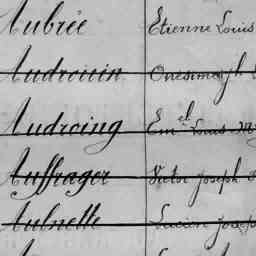 Aubrée Etienne Louis
Audrouin Onesime jh
Audroing Em.el Louis M
Auffrager Victor Joseph
Aulnette Lucien Joseph